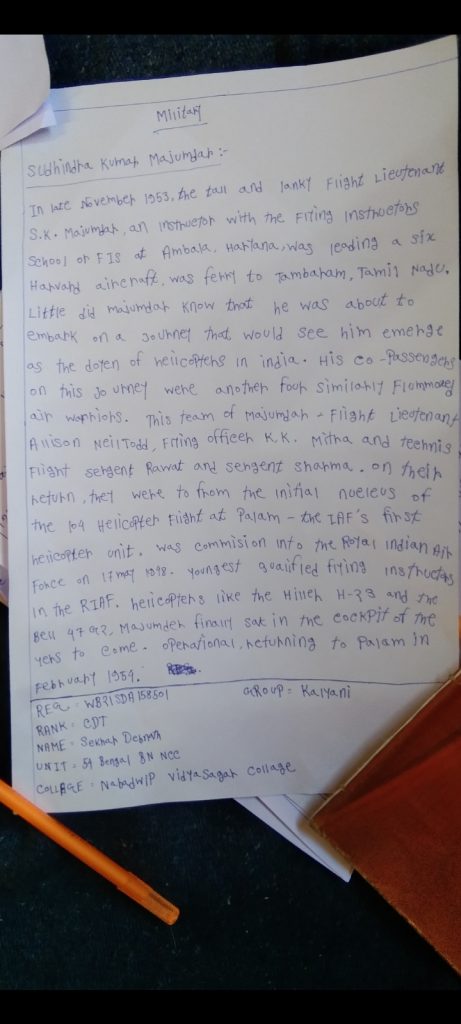 Military
Subhindra Kumar Majumdar :-
In late November 1953, the tall and lanky Flight Lieutenant
S.K. Majumdar, an instructor with the Flying Instructors
School or FIS at Ambala, Haryana, was leading a six
Harvard aircraft, was ferry to Tambaram, Tamil Nadu.
Little did majumdar know that he was about to
embark on a Journey that would see him emerge
as the doyen of helicopters in india. His co-Passengers
on this Journey were another four similarly Flummoxed
air warriors. This team of Majumdar - Flight Lieutenant
Allison Neil Todd, Flying officer K.K. Mitra and technis
Flight sergent Rawat and sergent sharma. on their
return, they were to from the initial nucleus of
the 104 Helicopter Flight at Palam - the IAF's first
helicopter unit. was commision into the Royal Indian Air
Force on 17 may 1948. Youngest qualified flying instructors
in the RIAF. helicopters like the Hiller H-23 and the
Bell 47 G2, Majumder finally sat in the cockpit of the
yers to come. operational, returning to Palam in
February 1954.
REG : WB21SDA158501 GROUP : Kalyani
RANK : CDT
NAME : Sekhar Debnath
UNIT : 54 Bengal BN NCC
COLLAGE : Nabadwip Vidyasagar Collage